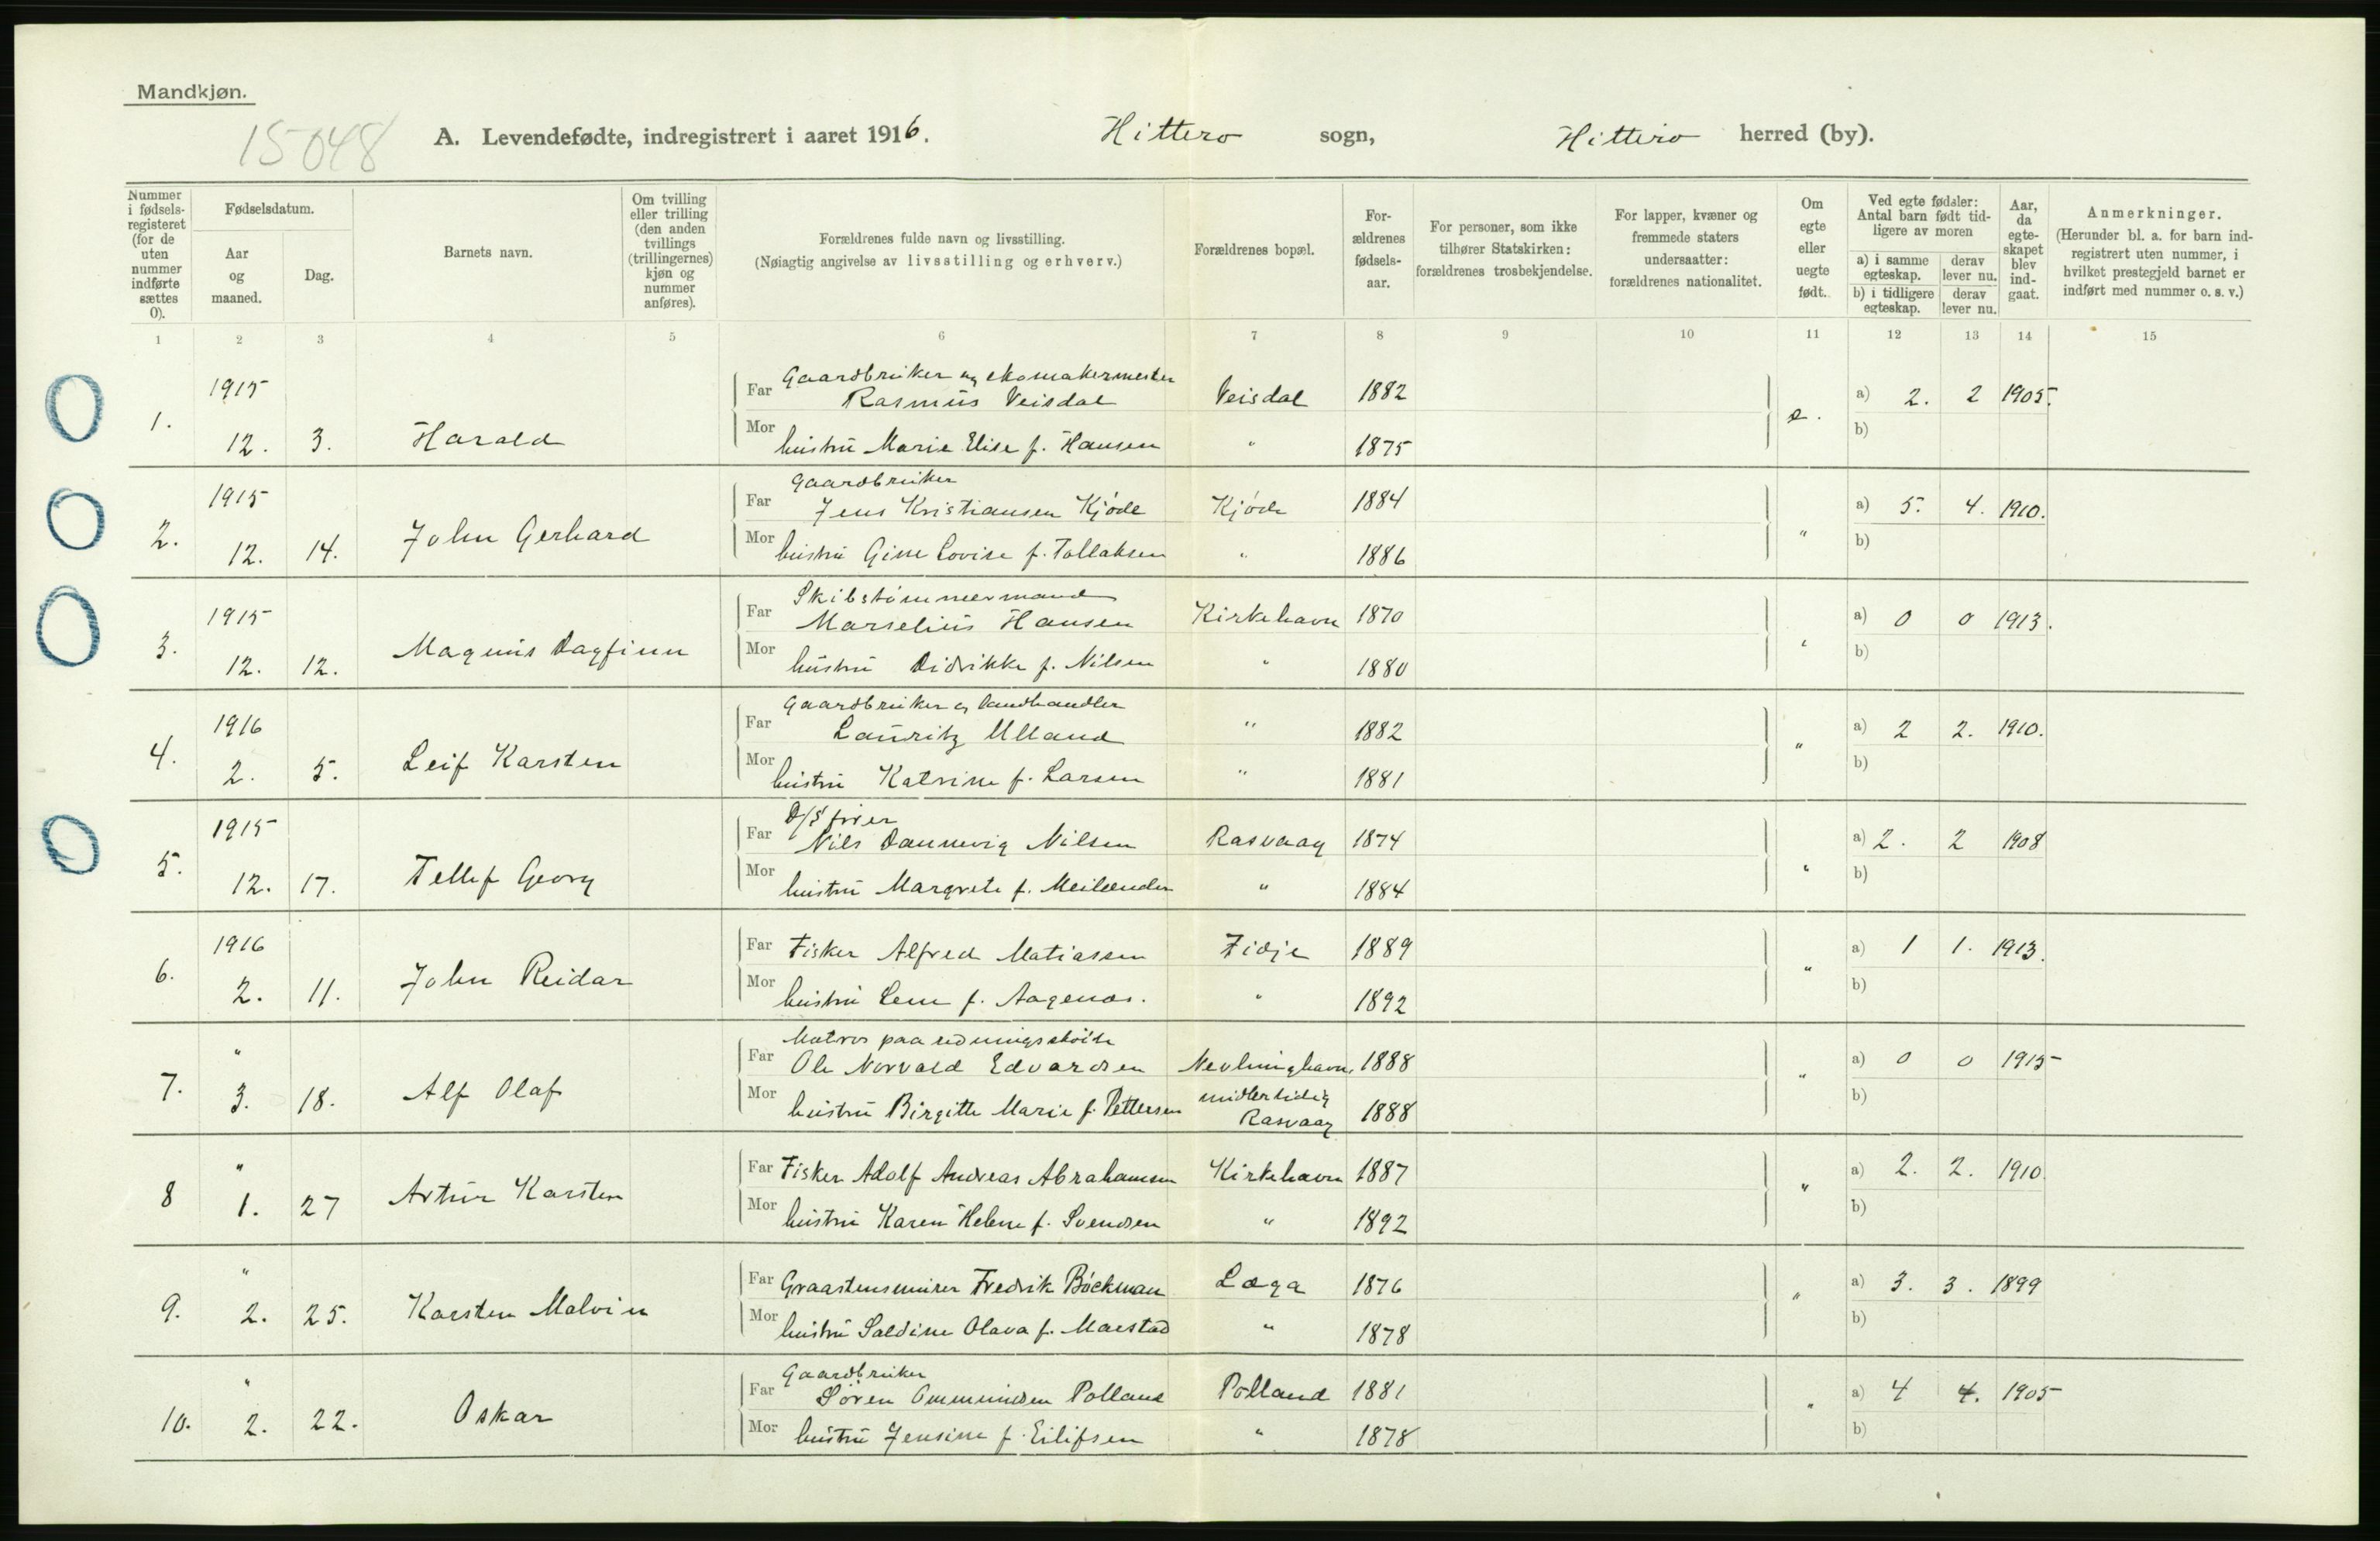 Mandkjøn.
15048
A. Levendefødte, indregistrert i aaret 1916. Hitterø sogn, Hitterø herred (by).
Nummer i fødselsregisteret (for de uten nummer indførte sættes 0).
Fødselsdatum.
Aar og maaned.
Dag.
Barnets navn.
Om tvilling eller trilling (den anden tvillings (trillingernes) kjøn og nummer anføres).
Forældrenes fulde navn og livsstilling.
(Nøiagtig angivelse av livsstilling og erhverv.)
Forældrenes bopæl.
Forældrenes fødselsaar.
For personer, som ikke tilhører Statskirken: forældrenes trosbekjendelse.
For lapper, kvæner og fremmede staters undersaatter: forældrenes nationalitet.
Om egte eller uegte født.
Ved egte fødsler: Antal barn født tidligere av moren
a) i samme egteskap. derav lever nu.
b) i tidligere egteskap. derav lever nu.
Aar, da egteskapet blev indgaat.
Anmerkninger.
(Herunder bl. a. for barn indregistrert uten nummer, i hvilket prestegjeld barnet er indført med nummer o. s. v.)
1 2 3 4 5 6 7 8 9 10 11 12 13 14 15
1915 Gaardbruker og skomakermester
Far Rasmus Veisdal Veisdal 1882 a) 2. 2 1905.
1. 12. 3. Harald e.
Mor hustru Marie Elise f. Hansen " 1875 b)
1915 Gaardbruker
Far Jens Kristiansen Kjøde Kjøde 1884 a) 5. 4. 1910.
2. 12. 14. John Gerhard "
Mor hustru Gine Lovise f. Tollaksen " 1886 b)
1915 Skibstømmermand
Far Marselius Hansen Kirkehavn 1870 a) 0 0 1913.
3. 12. 12. Magnus Dagfinn "
Mor hustru Didrikke f. Nilsen " 1880 b)
1916 Gaardbruker og landhandler
Far Lauritz Ulland " 1882 a) 2 2. 1910.
4. 2. 5. Leif Karsten "
Mor hustru Katrine f. Larsen " 1881 b)
1915 D/S fører
Far Nils Dannevig Nilsen Rasvaag 1874 a) 2. 2 1908
5. 12. 17. Tellef Georg "
Mor hustru Margrete f. " 1884 b)
1916 Far Fisker Alfred Matiassen Fidje 1889 a) 1 1. 1913.
6. 2. 11. John Reidar "
Mor hustru Lene f. Aagenæs. " 1892 b)
" Matros paa redningsskøite
Far Ole Norvald Edvardsen Nevlunghavn, 1888 a) 0 0 1915
7. 3. 18. Alf Olaf "
Mor hustru Birgitte Marie f. Pettersen midlertidig Rasvaag 1888 b)
" Far Fisker Adolf Andreas Abrahamsen Kirkehavn 1887 a) 2. 2. 1910.
8 1. 27 Artur Karsten "
Mor hustru Karen Helene f. Svendsen " 1892 b)
" Far Graastensmurer Fredrik Bøckman Læga 1876 a) 3. 3. 1899
9. 2. 25. Karsten Malvin "
Mor hustru Saldine Olava f. Maestad " 1878 b)
" Gaardbruker
Far Søren Ommundsen Polland Polland 1881 a) 4 4. 1905
10. 2. 22. Oskar "
Mor hustru Jensine f. Eilifsen " 1878 b)